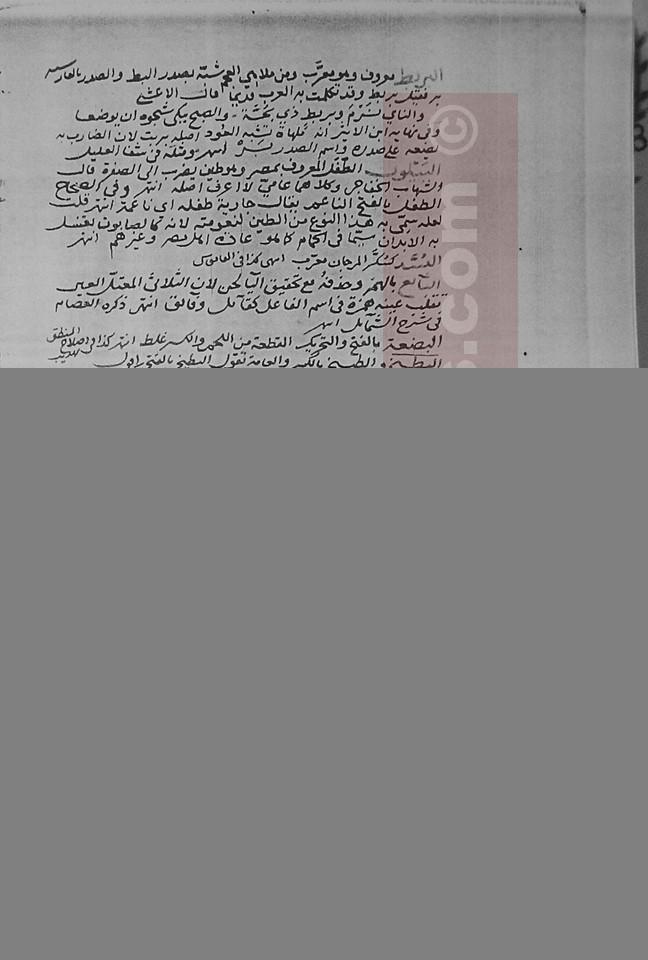 البربط معروف وهو معرب ومن ملاهي العجم شبه بصدر البط والصدر بالفارسية
بر فقيل بربط وقد تكلمت به العرب قديما قال الاعشى
والناي نرم وبربط ذي بحة والصنج يبكي شجوه ان يوضعا
وفي نهاية ابن الاثير انه ملهاة تشبه العود اصله بربت لان الضارب به
يضعه على صدره واسم الصدر بر انتهى ومثله في شفا العليل
الطفل المعروف بمصر وهو طين يضرب الى الصفرة قال
الشهاب الخفاجي وكلاهما عامي لا اعرف اصله انتهى وفي الصحاح
الطفل بالفتح الناعم يقال جارية طفلة اي ناعمة انتهى قلت
لعله سمي به هذا النوع من الطين لنعومته لانه كالصابون يغسل
به الابدان سيما في الحمام كما هو عادة اهل مصر وغيرهم انتهى
كسكر المرجان معرب انتهى كذا في القاموس
البائع بالهمز وحذفه مع تحقيق اليا لحن لان الثلاثي المعتل العين
تقلب عينه همزة في اسم الفاعل كقائل وقائق انتهى ذكره العصام
في شرح الشمائل انتهى
البضعة بالفتح والتحريك القطعة من اللحم والكسر غلط انتهى كذا في اصلاح المنطق
البطيخ و الطبيخ بالكسر والعامة تقول البطيخ بالفتح
s.com ©